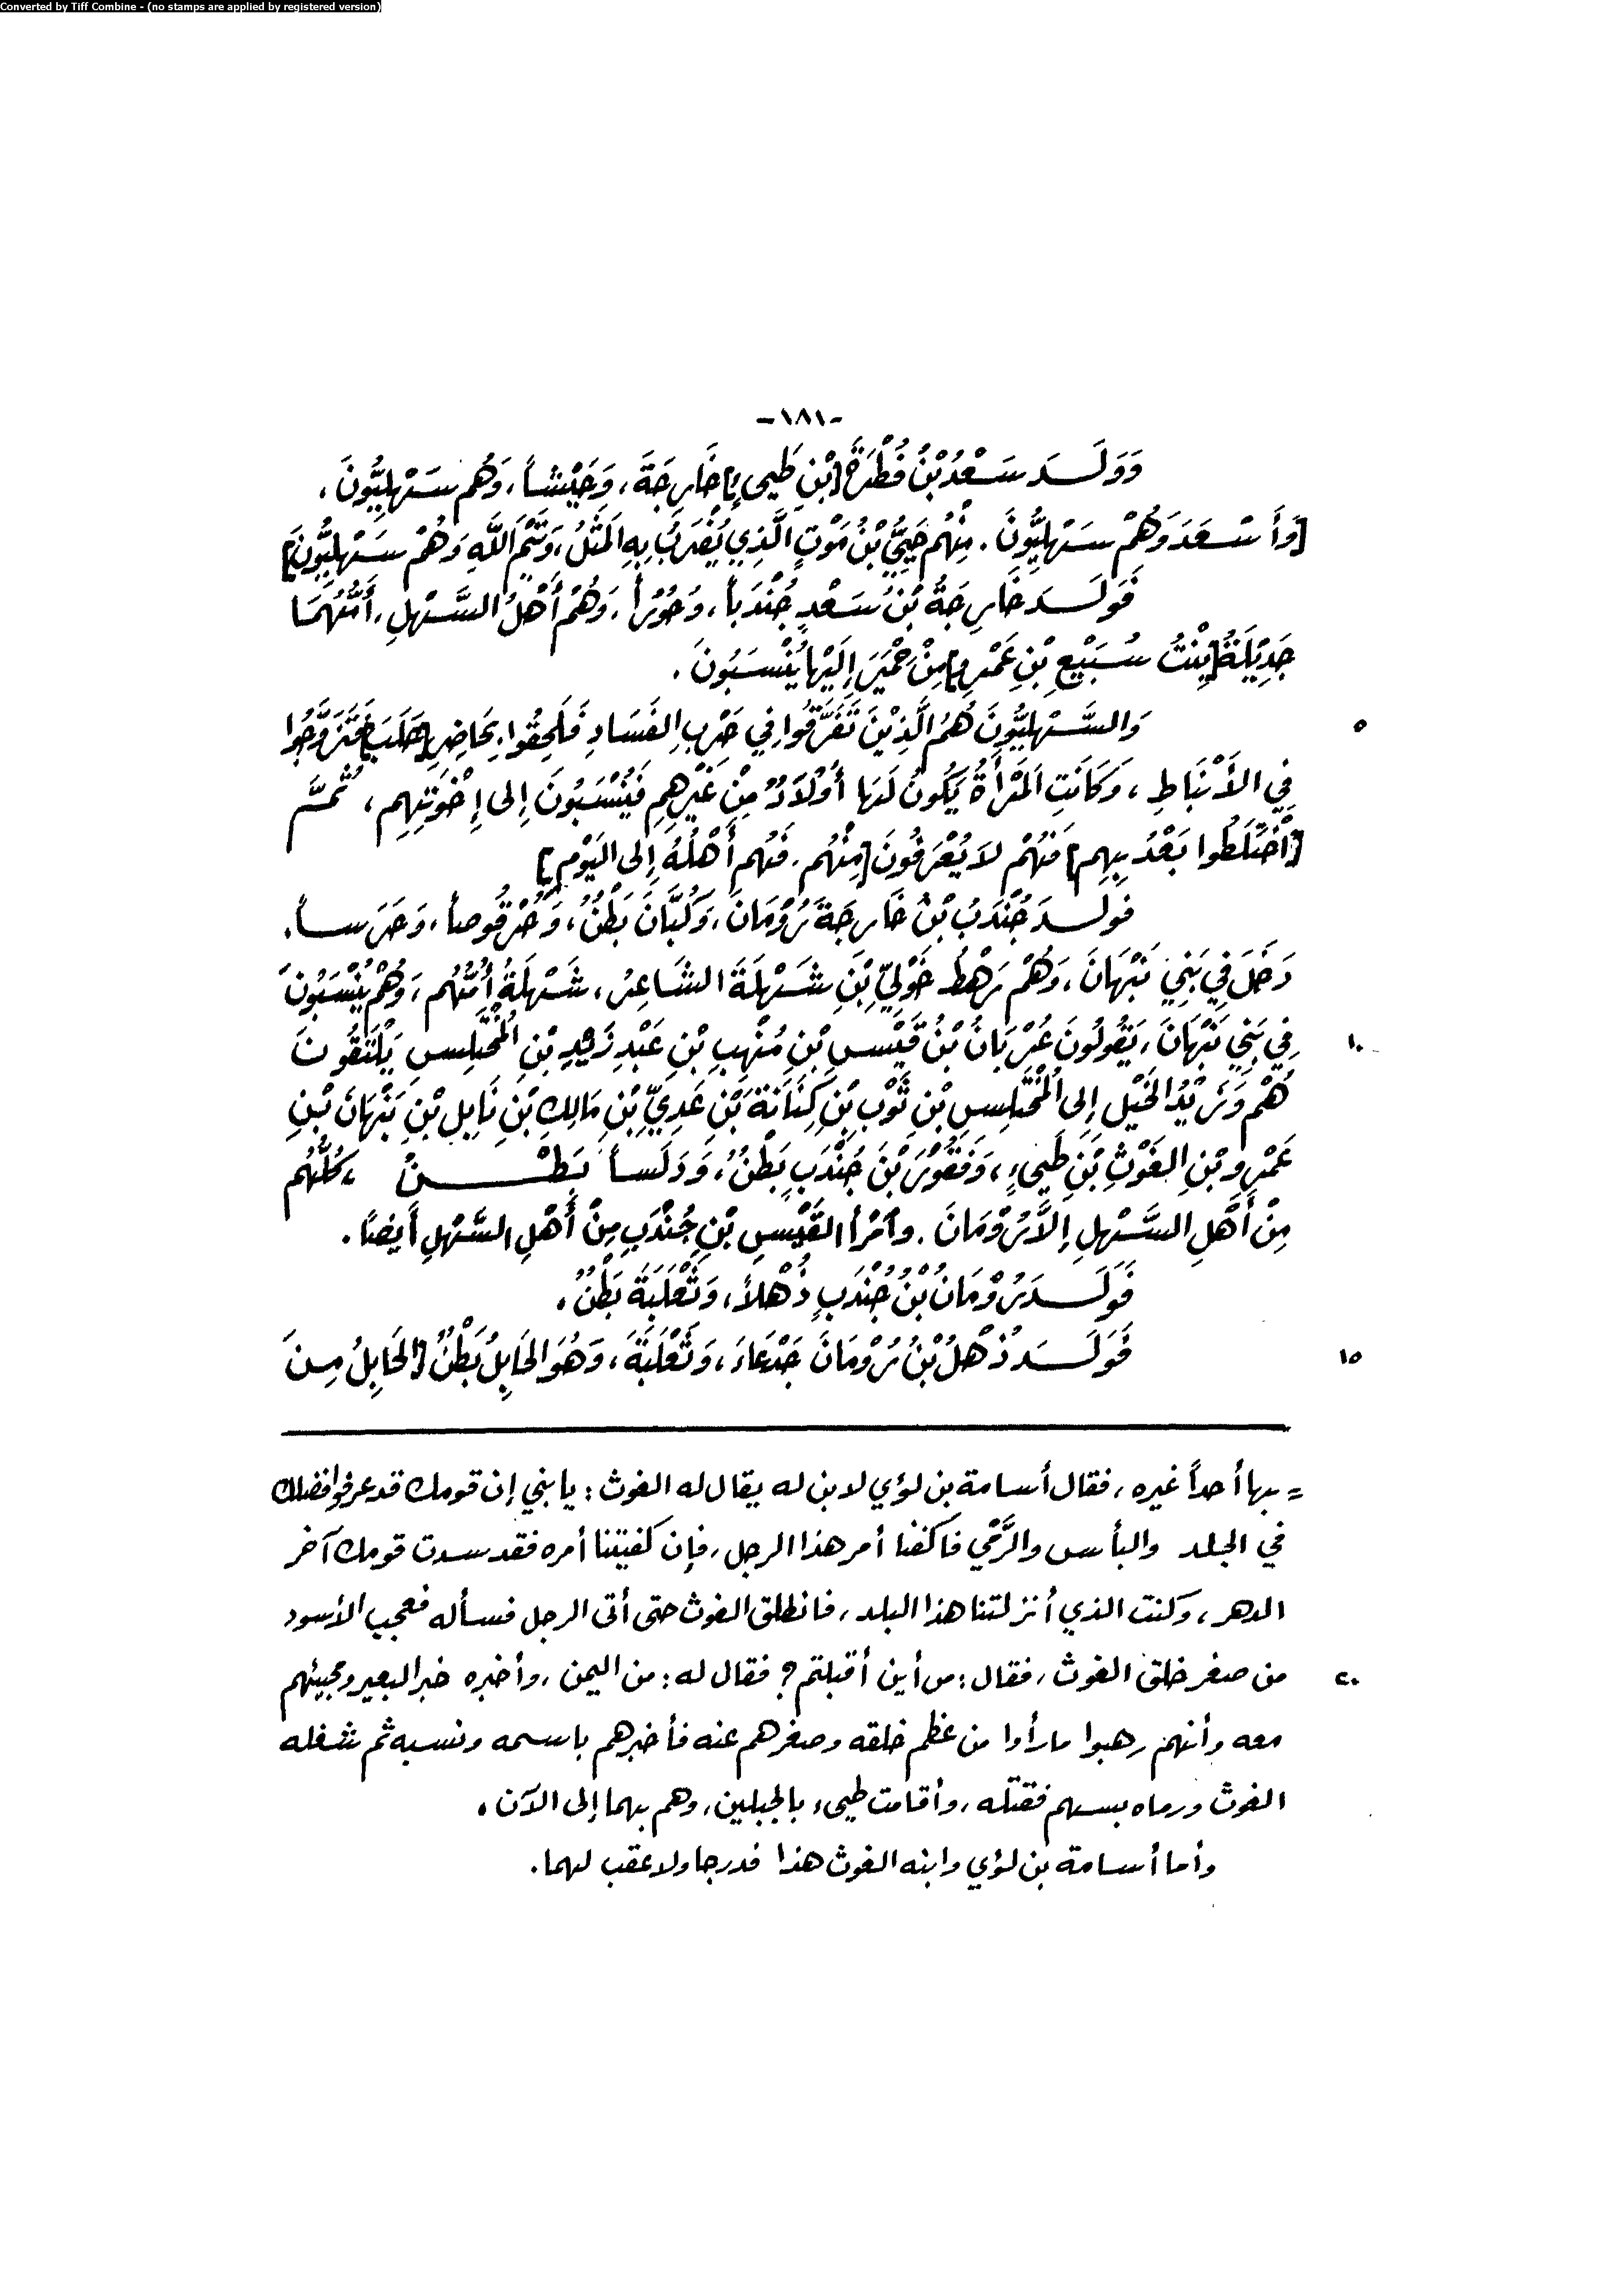 Converted by Tiff Combine - (no stamps are applied by registered version)
-١٨١-
وَوَلَـدَ سَعْدُ بْنُ فُطْرَةَ [بْنِ طَيِىءٍ] خَارِجَةَ، وَجَيْشاً، وَهُم سَهْلِيُّونَ،
[وَأَسْعَدَ وَهُمْ سَهْلِيُّونَ. مِنْهُم حَيِيُّ بْنُ مَوْتٍ الَّذِي يُضْرَبُ بِهِ المَثَلُ، وَتَيْمَ اللَّهِ وَهُمْ سَهْلِيُّونَ]
فَوَلَـدَ خَارِجَةُ بْنُ سَعْدٍ جُنْدَباً، وَحُوْراً، وَهُمْ أَهْلُ السَّهْلِ، أُمُّهُمَا
جَدِيْلَةُ [بِنْتُ سُبَيْعِ بْنِ عَمْرٍو] مِنْ حِمْيَرَ إِلَيْهَا يُنْسَبُونَ.
٥
وَالسَّهْلِيُّونَ هُمُ الَّذِيْنَ تَفَرَّقُوا فِي حَرْبِ الفَسَادِ فَلَحِقُوا بِحَاضِرِ [حَلَبَ] فَتَزَوَّجُوا
فِي الأَنْبَاطِ، وَكَانَتِ المَرْأَةُ يَكُونُ لَهَا أَوْلَادٌ مِنْ غَيْرِهِمِ فَيُنْسَبُونَ إِلى إِخْوَتِهِم، ثُمَّ
[اخْتَلَطُوا بَعْدُ بِهِم] فَهُمْ لاَ يُعْرَفُونَ [مِنْهُم. فَهُم أَهْلُهُ إِلى اليَوْمِ]
فَوَلَـدَ جُنْدَبُ بْنُ خَارِجَةَ رُوْمَانَ، وَكُبَّانَ بَطْنٌ، وَحُرْقُوصاً، وَحَرَساً.
دَخَلَ فِي بَنِي نَبْهَانَ، وَهُمْ رَهْطُ خَوْلِيِّ بْنِ شَهْلَةَ الشَّاعِرُ، شَهْلَةُ أُمُّهُم، وَهُمْ يُنْسَبُونَ
١٠
فِي بَنِي نَبْهَانَ، يَقُولُونَ عُرْيَانُ بْنُ قَيْسِ بْنِ مُنْهِبِ بْنِ عَبْدِ زَيْدِ بْنِ المُخْتَلِسِ يَلْتَقُونَ
هُمْ وَزَيْدُ الخَيْلِ إِلى المُخْتَلِسِ بْنِ ثَوْبِ بْنِ كِنَانَةَ بْنِ عَدِيِّ بْنِ مَالِكِ بْنِ نَابِلِ بْنِ نَبْهَانَ بْنِ
عَمْرِو بْنِ الغَوْثِ بْنِ طَيِىءٍ، وَفَغُوْرَ بْنَ جُنْدَبٍ بَطْنٌ، وَدَلَساً بَطْـنٌ، كُلُّهُم
مِنْ أَهْلِ السَّهْلِ إِلاَّ رُوْمَانَ. وامْرأ القَيْسِ بْنِ جُنْدَبِ مِنْ أَهْلِ السَّهْلِ أَيضاً.
فَوَلَـدَ رُوْمَانُ بْنُ جُنْدَبٍ ذُهْلاً، وَثَعْلَبَةَ بَطْنٌ.
١٥
فَوَلَـدَ ذُهْلُ بْنُ رُوْمَانَ جَدْعَاءَ، وَثَعْلَبَةَ، وَهُوَ الحَابِلُ بَطْنٌ [الحَابِلُ مِـنَ
= بها أحداً غيره، فقال أسامة بن لؤي لابن له يقال له الغوث: يا بني إن قومك قد عرفوا فضلك
في الجلد والبأس والرَّمْي فاكفنا أمر هذا الرجل، فإن كفيتنا أمره فقد سدت قومك آخر
الدهر، وكنت الذي أنزلتنا هذا البلد، فانطلق الغوث حتى أتى الرجل فسأله فعجب الأسود
٢٠
من صغر خلق الغوث، فقال: من أين أقبلتم؟ فقال له: من اليمن، وأخبره خبر البعير ومجيئهم
معه وأنهم رهبوا ما رأوا من عظم خلقه وصغرهم عنه فأخبرهم باسمه ونسبه ثم شغله
الغوث ورماه بسهم فقتله، وأقامت طيىء بالجبلين، وهم بهما إلى الآن.
وأما أسامة بن لؤي وابنه الغوث هذا فدرجا ولا عقب لهما.